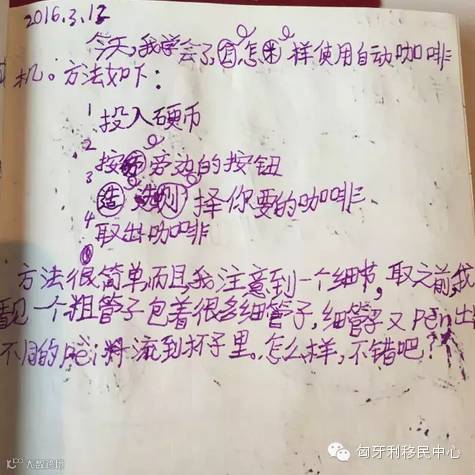 2016.3.12
今天,我学会了怎样使用自动咖啡
机。方法如下:
1 投入硬币
2 按旁边的按钮
3 选择你要的咖啡
4 取出咖啡
方法很简单而且,我注意到一个细节,取之前,我
看见一个粗管子包着很多细管子,细管子又Pen出
不同的pei料流到杯子里。怎么样,不错吧?
匈牙利移民中心